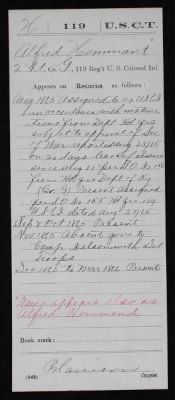 H | 119 | U.S.C.T.
Alfred Hemmiant
Co. G, 119 Reg't U. S. Colored Inf.
Appears on Returns as follows:
Aug 1865 Assigned to
in accordance with instruc
tions from Dept Hd Qrs
subject to approval of Sec
of War
on 20 days leave of absence
since Aug
from Hd Qrs Dept of Ky
(Co. G) Present Assigned
per S O No 158 Hd Qrs 119
U.S.C.I. dated Aug 27/65
Sep & Oct 1865 Present
Nov 1865 Absent gone to
Camp Nelson with Det
Troops
Dec 1865 to Mar 1866 Present
Name appears also as
Alfred Hemmend
Book mark:
(546)
Copyist.